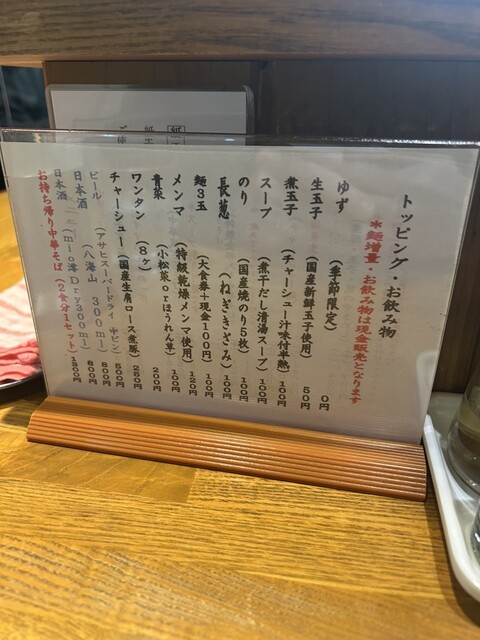 トッピング・お飲み物
*麺増量・お飲み物は現金販売となります
ゆず (季節限定) 0円
生玉子 (国産新鮮玉子使用) 50円
煮玉子 (チャーシュー汁味付半熟) 100円
スープ (煮干だし清湯スープ) 100円
のり (国産焼のり5枚) 100円
長葱 (ねぎきざみ) 100円
麺3玉 (大食券+現金100円) 100円
メンマ (特級乾燥メンマ使用) 120円
青菜 (小松菜orほうれん草) 100円
ワンタン (8ヶ) 200円
チャーシュー (国産生肩ロース煮豚) 250円
ビール (アサヒスーパードライ 中ビン) 500円
日本酒 (八海山 300ml) 800円
日本酒 (mio澪Dry300ml) 800円
お持ち帰り中華そば (2食分1セット) 1300円